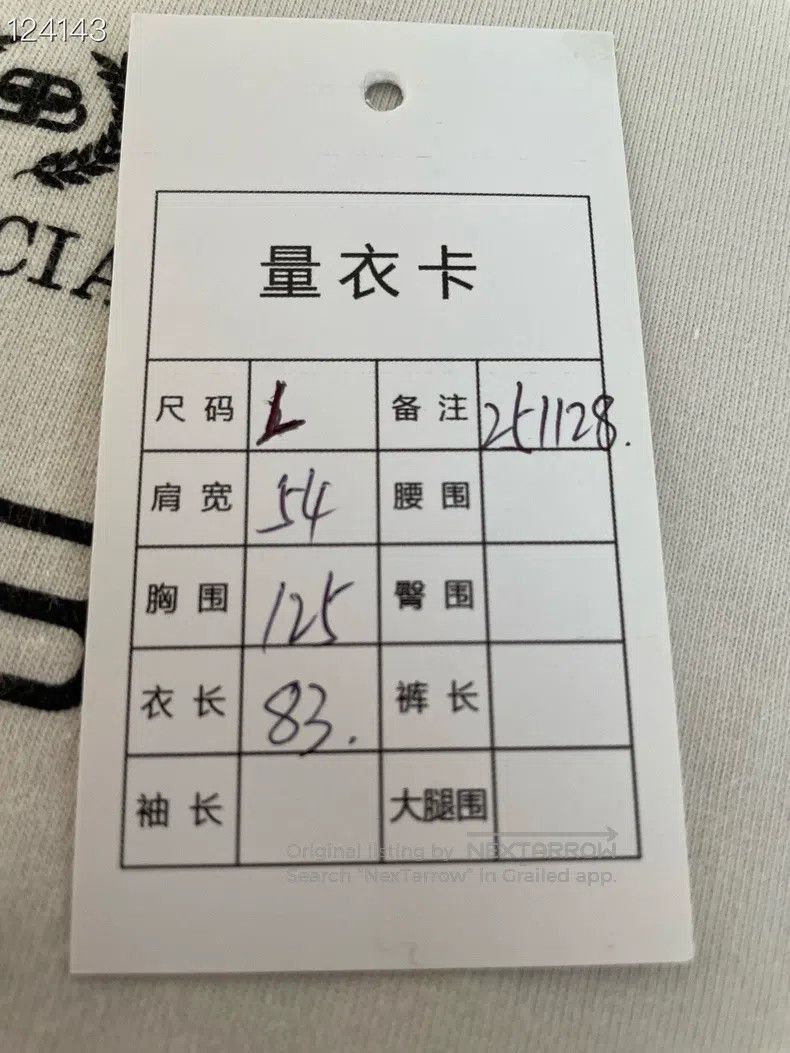 124143
CIA
量衣卡
尺码 L 备注 251128.
肩宽 54 腰围
胸围 125 臀围
衣长 83. 裤长
袖长 大腿围
Original listing by NEXTARROW
Search "NexTarrow" in Grailed app.